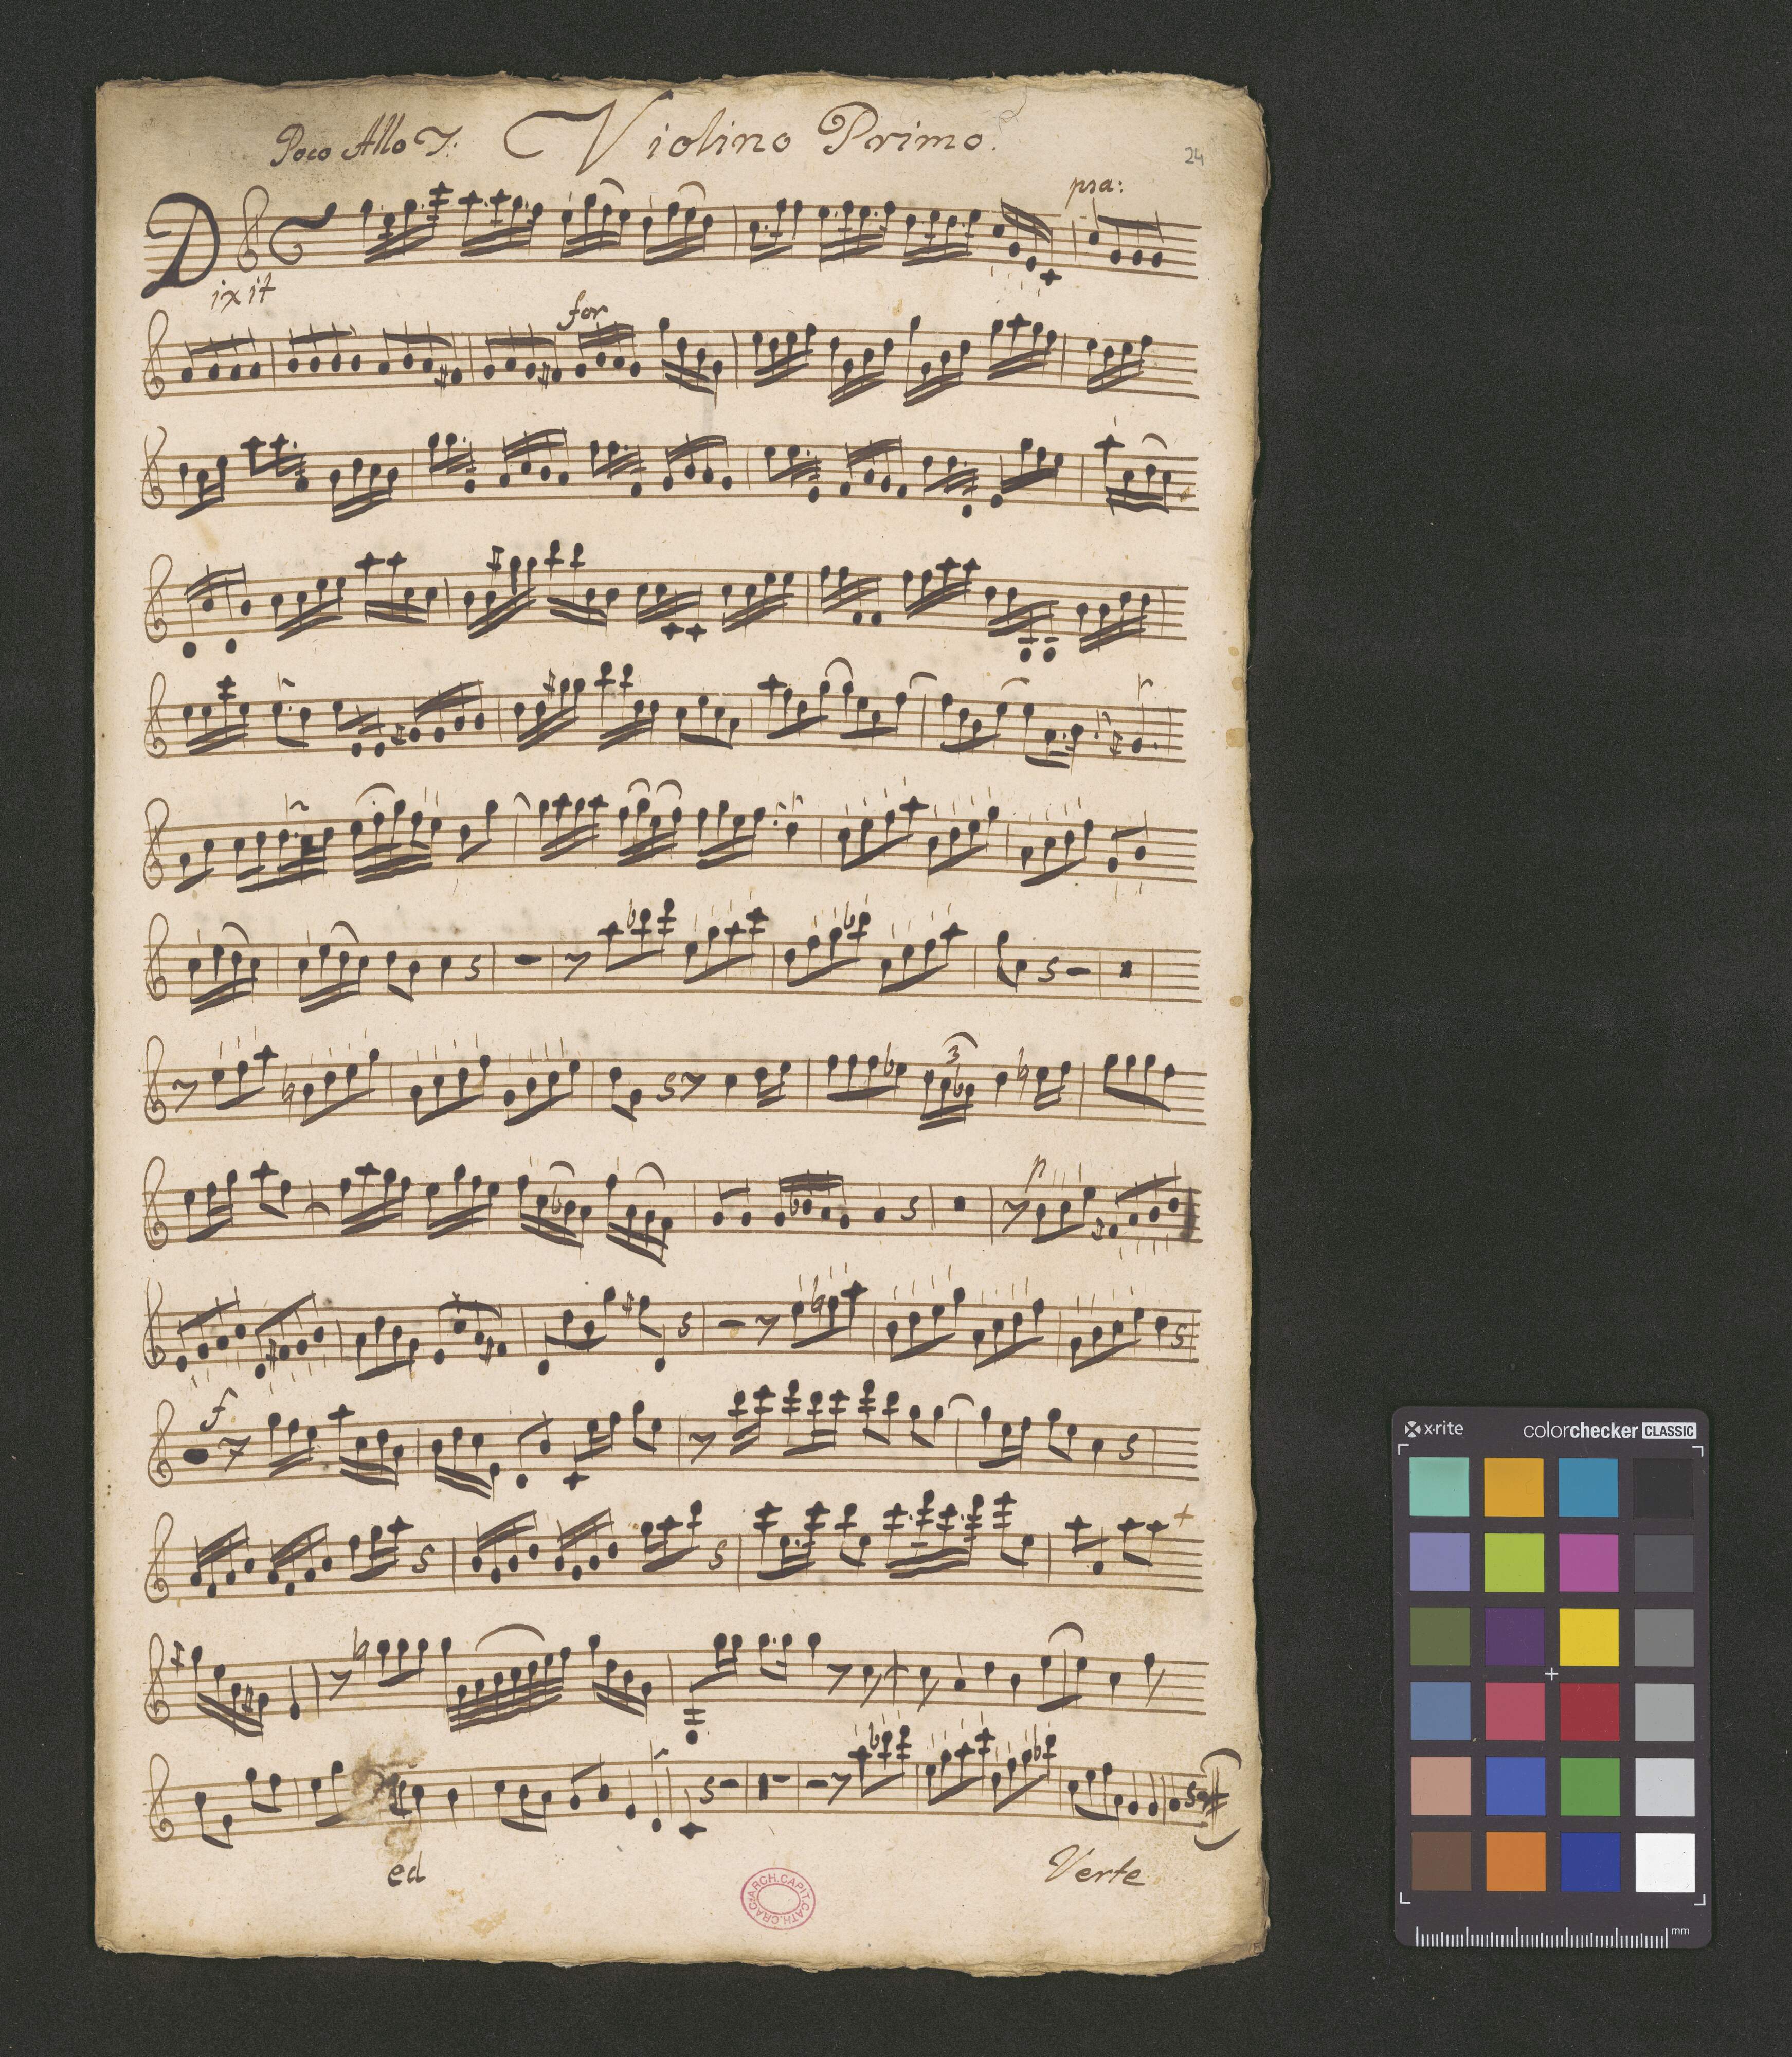 Poco Allo Violino Primo.
24
pia:
Dixit
for
3
p
f
ed
Verte
ARCH.CAPIT.CATH.CRAC
x·rite colorchecker CLASSIC
mm